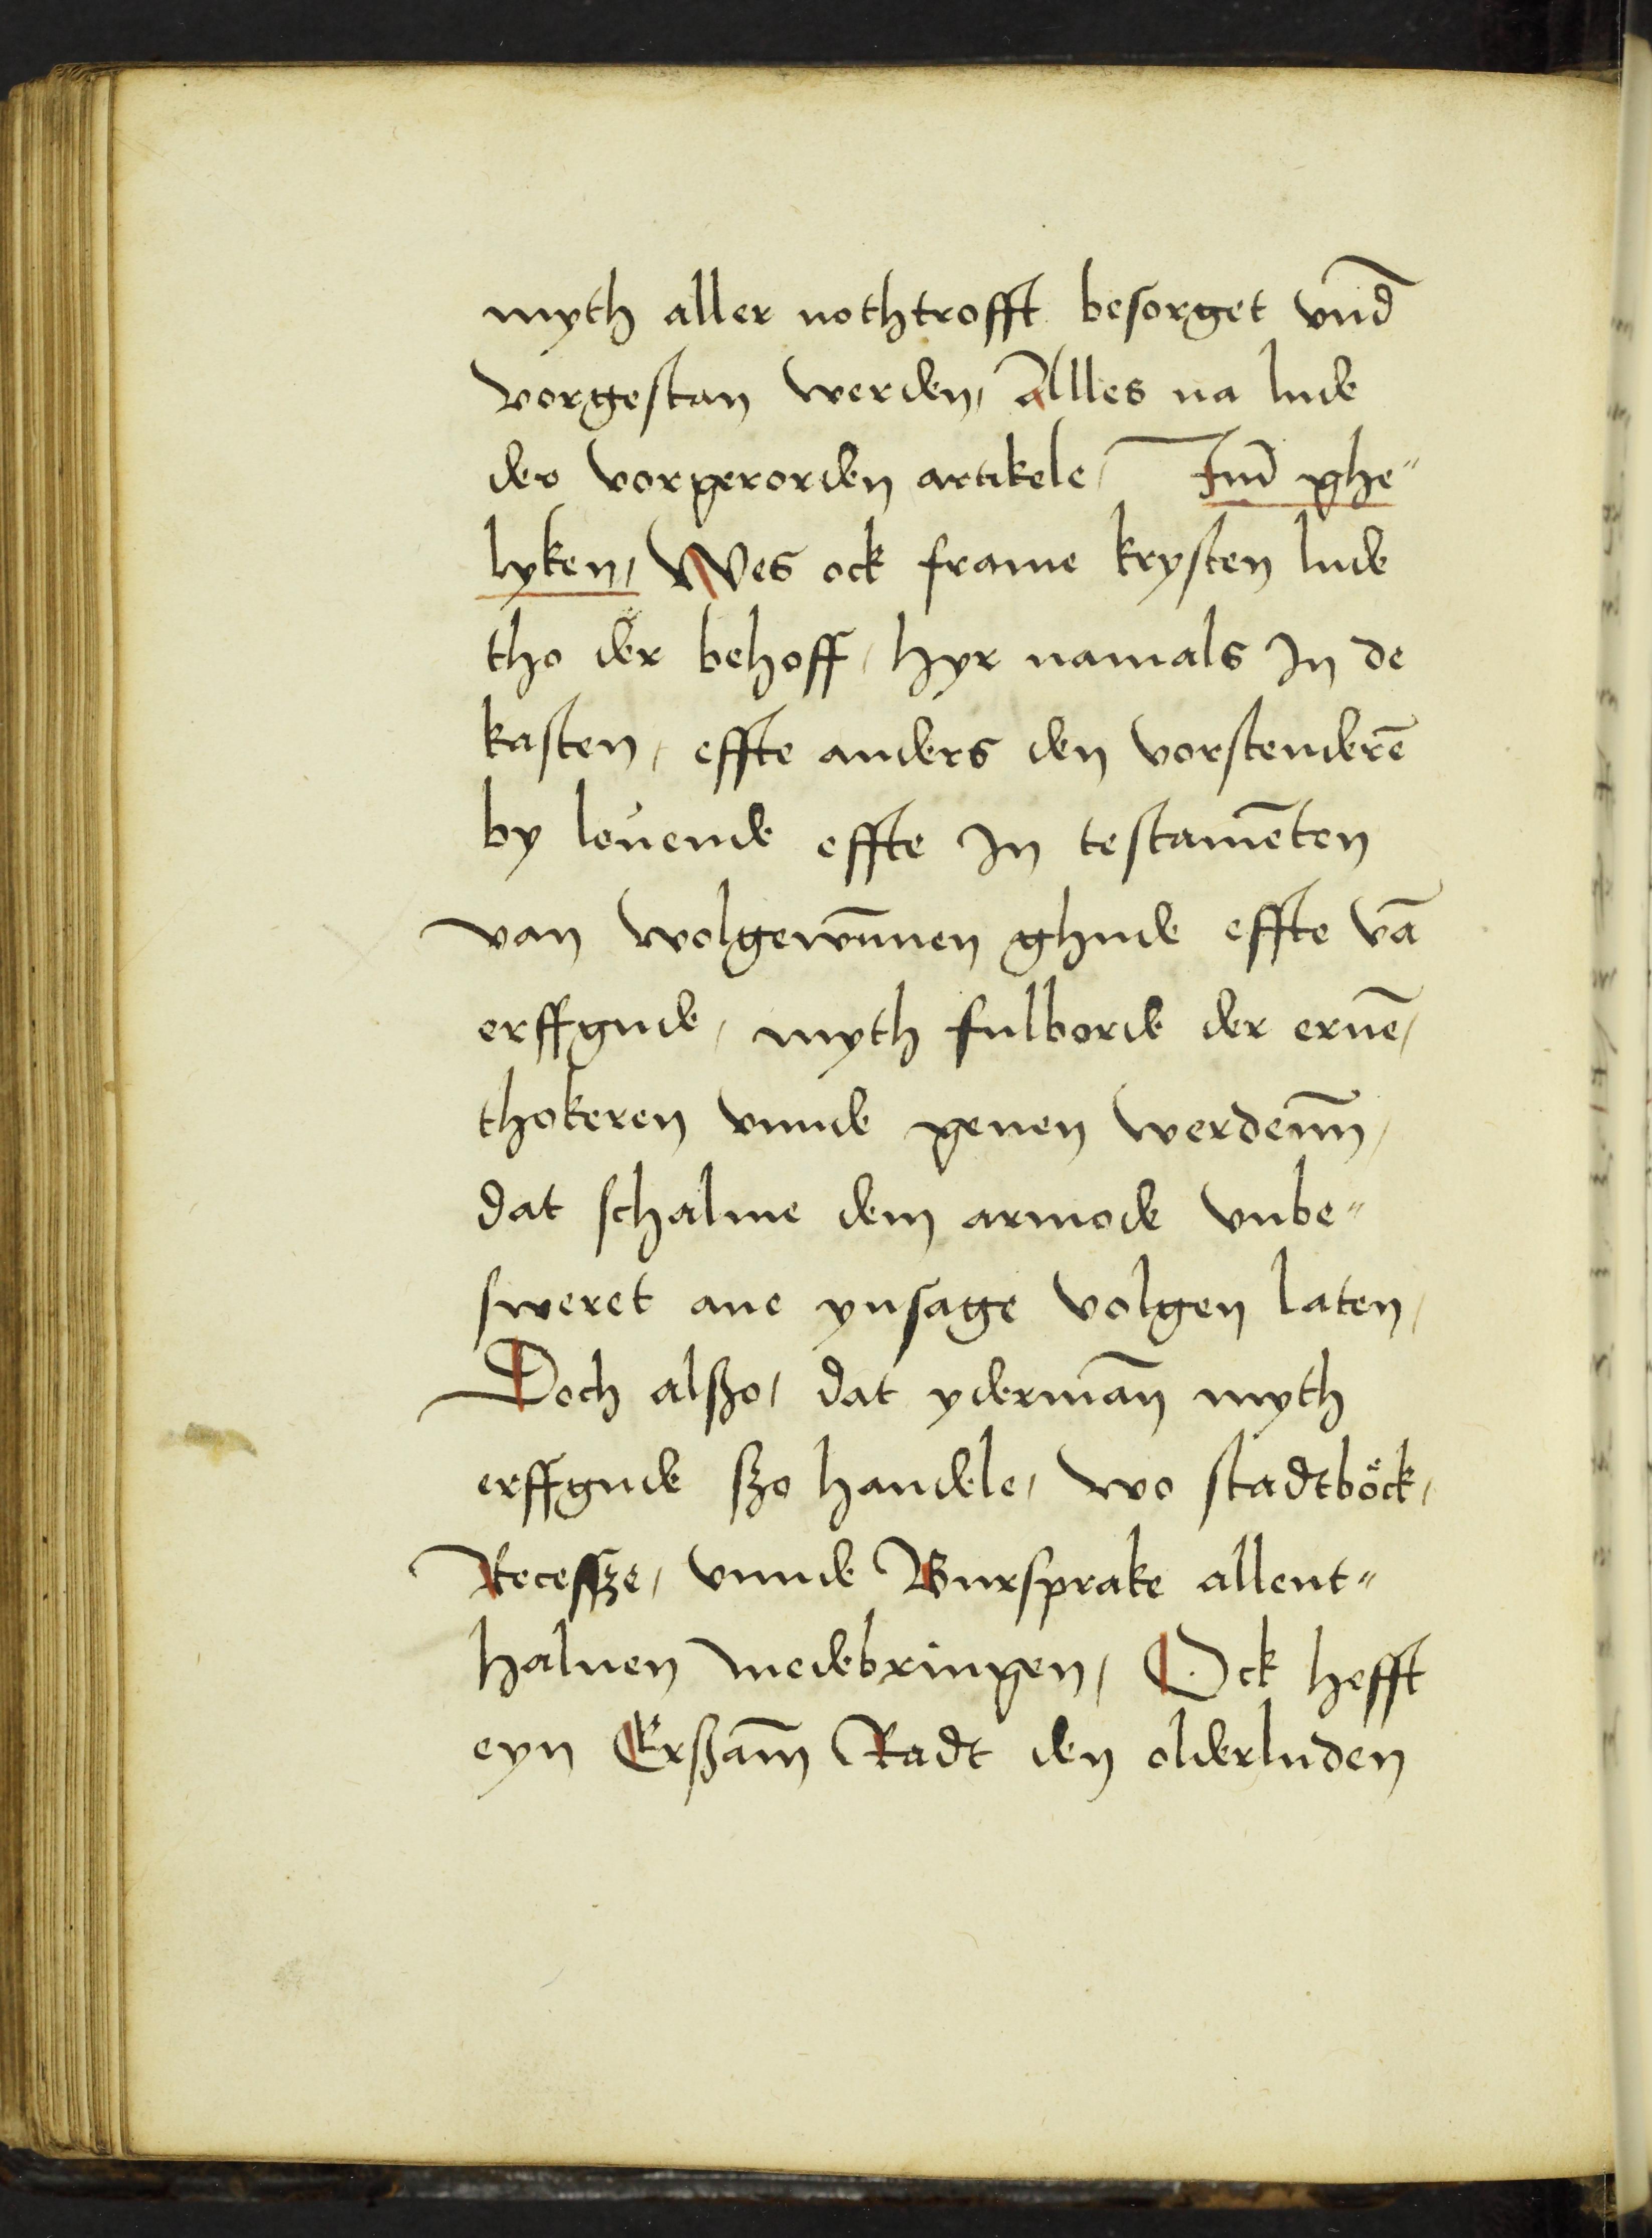 myth aller nothtrofft besorget vnd̄
vorgestan werden, Alles na lude
der vorgerorden artikele, Jnd̄ ghe"
lyken, Wes ock frame krysten lude
tho der behoff, hyr namals Jn de
kasten, effte anders den vorstenderē
by leuende effte Jn testamēten
van wolgewūnen ghude effte vā
erffgude, myth fulborde der eruē,
thokeren vnnde geuen werdenn̄,
dat schalme dem armode vnbe"
sweret ane ynsage volgen laten,
Doch alßo, dat ydermān myth
erffgude ßo handele, wo stadtböck,
Recessze, vnnde Bursprake allent"
haluen medebringen, Ock hefft
eyn Erßam̄ Radt den olderluden